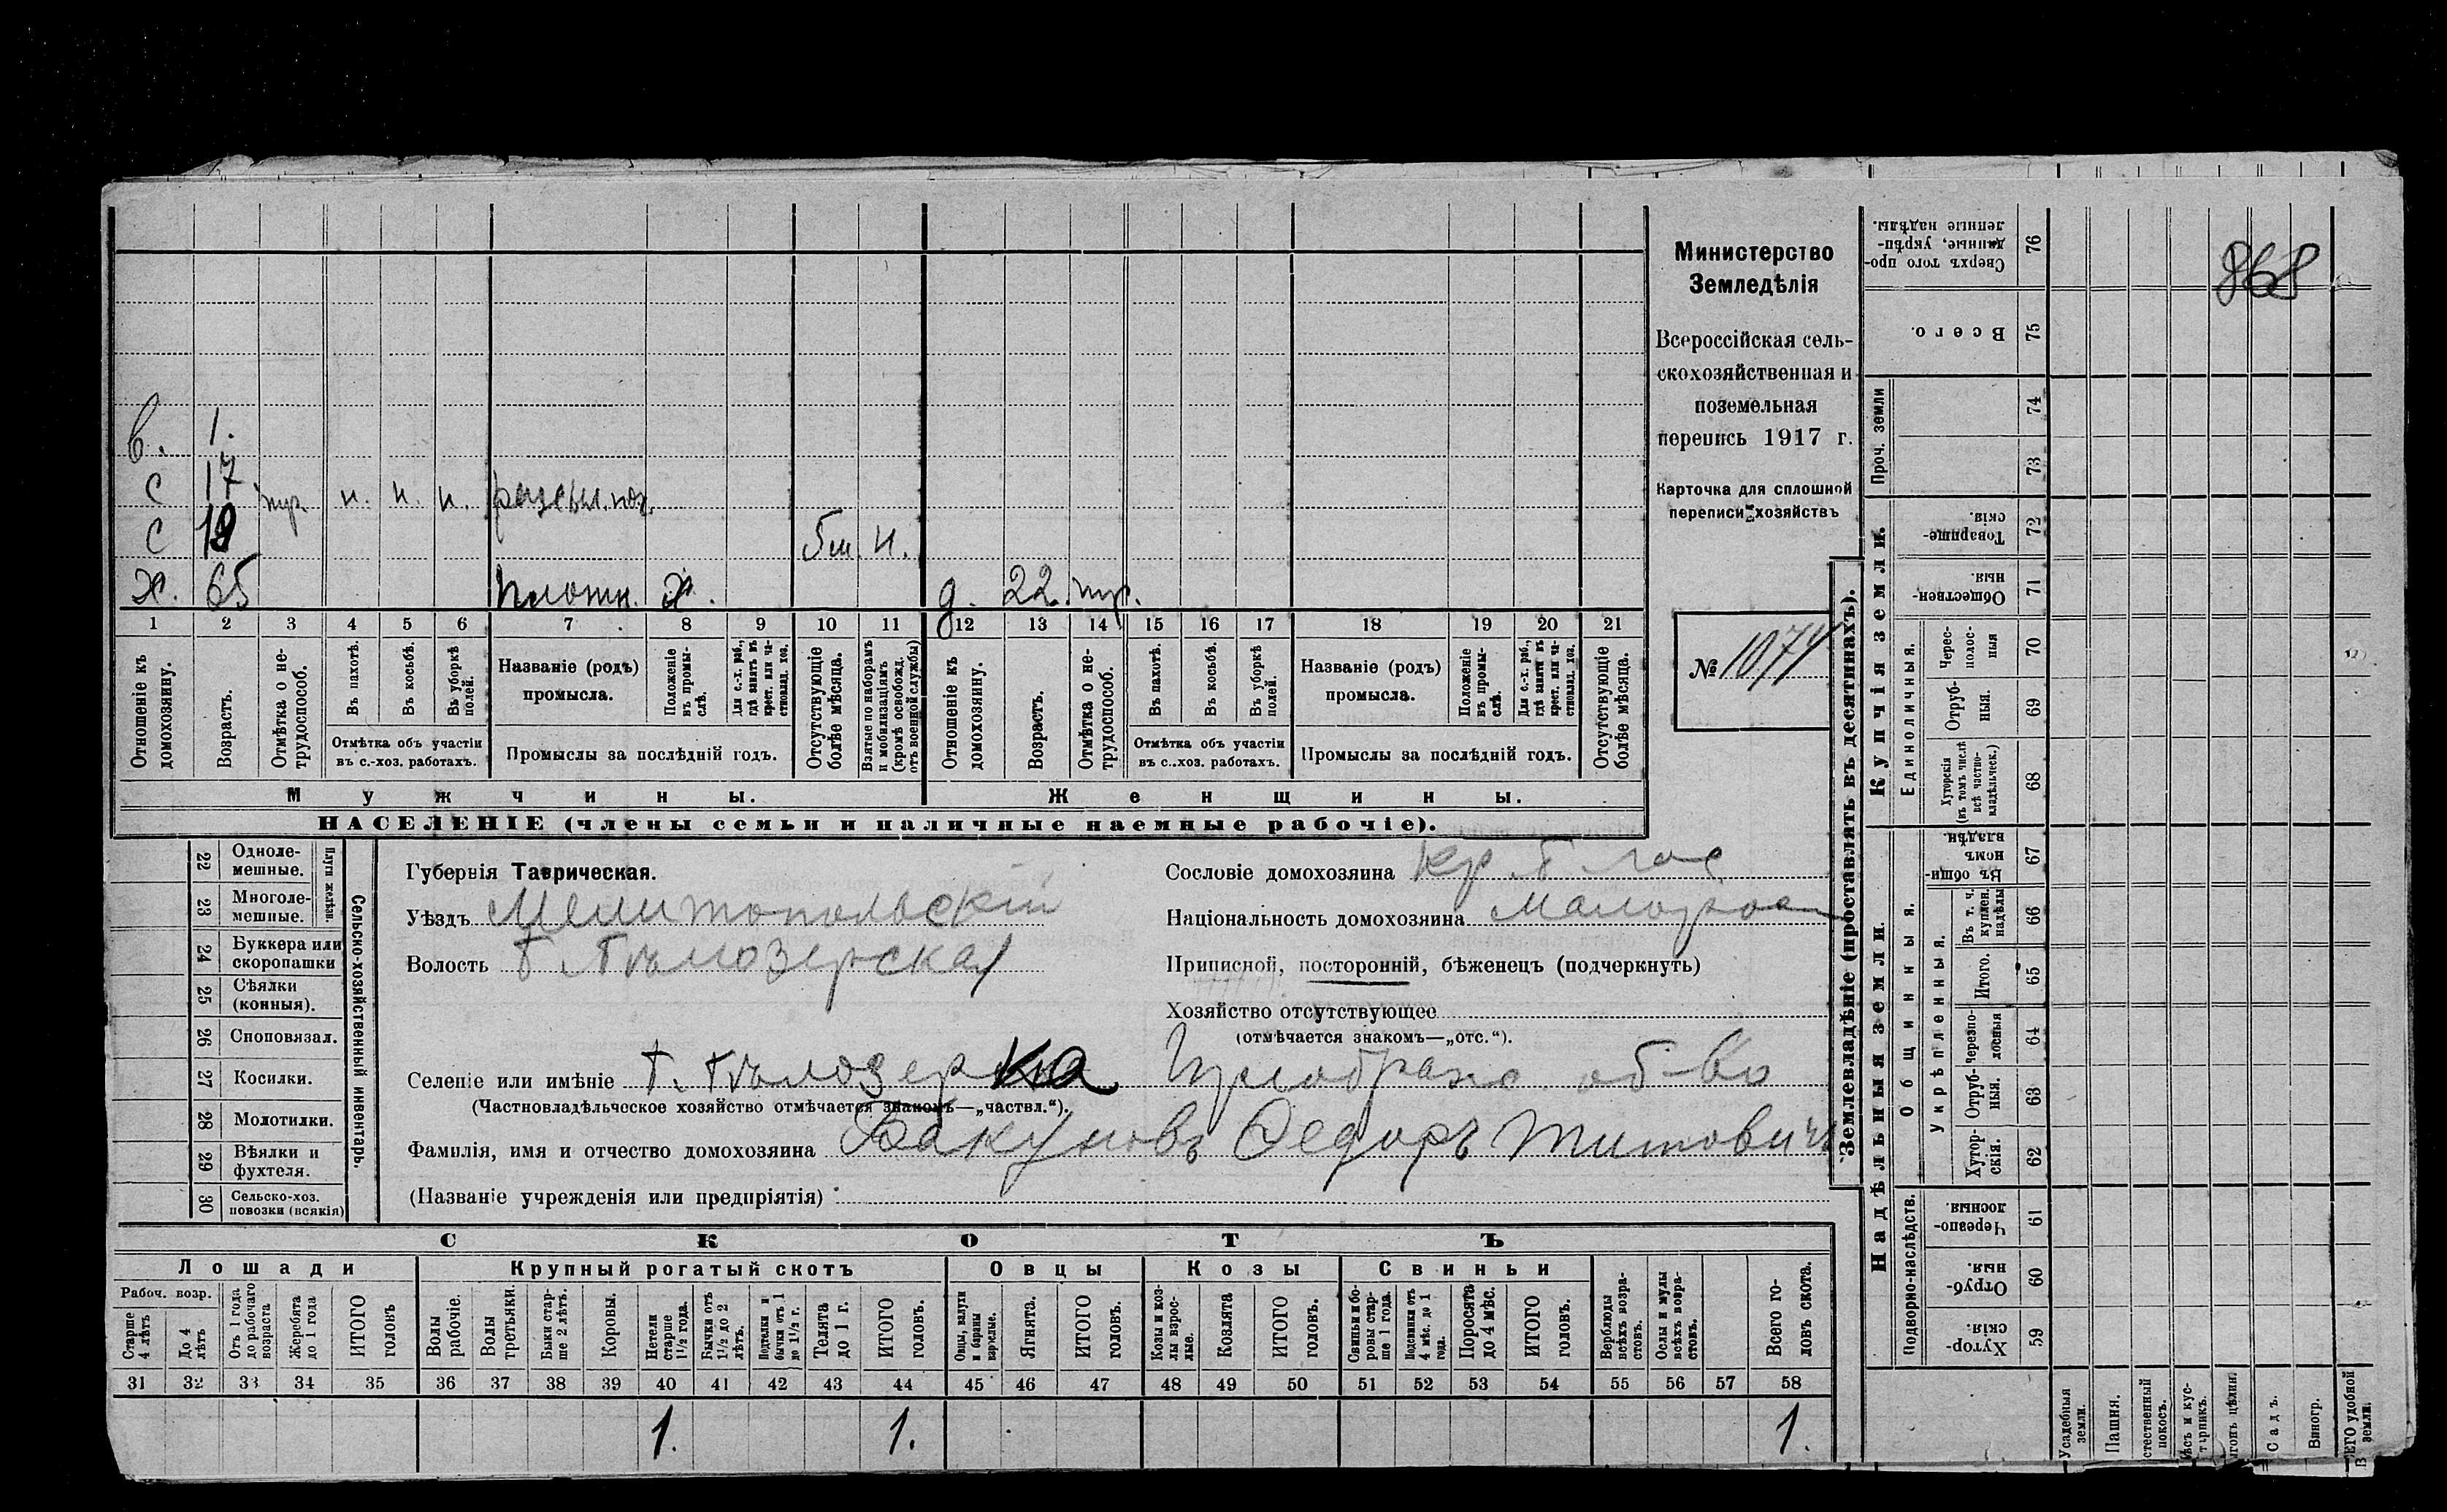 868
Министерство
Земледѣлія
Всероссійская сель-
скохозяйственная и
поземельная
перепись 1917 г.
Карточка для сплошной
переписи хозяйствъ
№ 1074
в. 1.
с 17 н. н. н.
с 19 н.
х. 65 плотн. х. д. 22.
1 2 3 4 5 6 7 8 9 10 11 12 13 14 15 16 17 18 19 20 21
Отношеніе къ домохозяину.
Возрастъ.
Отмѣтка о не-трудоспособ.
Въ пахотѣ.
Въ косьбѣ.
Въ уборкѣ полей.
Отмѣтка объ участіи
въ с.-хоз. работахъ.
Названіе (родъ)
промысла.
Положеніе въ промы-слѣ.
Для с.-х. раб., гдѣ занятъ въ крест. или ча-стновлад. хоз.
Промыслы за послѣдній годъ.
Отсутствующіе болѣе мѣсяца.
Взятые по наборамъ и мобилизаціямъ (кромѣ освобожд. отъ военной службы)
Отношеніе къ домохозяину.
Возрастъ.
Отмѣтка о не-трудоспособ.
Въ пахотѣ.
Въ косьбѣ.
Въ уборкѣ полей.
Отмѣтка объ участіи
въ с.-хоз. работахъ.
Названіе (родъ)
промысла.
Положеніе въ промы-слѣ.
Для с.-х. раб., гдѣ заняты въ крест. или ча-стновлад. хоз.
Промыслы за послѣдній годъ.
Отсутствующіе болѣе мѣсяца.
Мужчины.
Женщины.
НАСЕЛЕНІЕ (члены семьи и наличные наемные рабочіе).
22 Одноле-мешные.
23 Многоле-мешные.
Плуги желѣзн.
24 Буккера или скоропашки
25 Сѣялки (конныя).
26 Сноповязал.
27 Косилки.
28 Молотилки.
29 Вѣялки и фухтеля.
30 Сельско-хоз. повозки (всякія)
Сельско-хозяйственный инвентарь.
Губернія Таврическая.
Уѣздъ Мелитопольскій
Волость Б Бѣлозерская
Селеніе или имѣніе Б. Бѣлозерка
(Частновладѣльческое хозяйство отмѣчается знакомъ—„частвл.“).
Фамилія, имя и отчество домохозяина Бакуновъ Федоръ Титовичъ
(Названіе учрежденія или предпріятія)
Сословіе домохозяина Кр.
Національность домохозяина Малорос
Приписной, посторонній, бѣженецъ (подчеркнуть)
Хозяйство отсутствующее
(отмѣчается знакомъ—„отс.“).
об-во
СКОТЪ
Лошади
Рабоч. возр.
Старше 4 лѣтъ
До 4 лѣтъ
Отъ 1 года до рабочаго возраста
Жеребята до 1 года
ИТОГО головъ
Крупный рогатый скотъ
Волы рабочіе.
Волы третьяки.
Быки стар-ше 2 лѣтъ.
Коровы.
Нетели старше 1½ года.
Бычки отъ 1½ до 2 лѣтъ.
Подтелки и бычки отъ 1 до 1½ г.
Телята до 1 г.
ИТОГО головъ.
Овцы
Овцы, валухи и бараны взрослые.
Ягнята.
ИТОГО головъ.
Козы
Козы и коз-лы взрос-лые.
Козлята
ИТОГО головъ.
Свиньи
Свиньи и бо-ровы стар-ше 1 года.
Подсвинки отъ 4 мѣс. до 1 года.
Поросята до 4 мѣс.
ИТОГО головъ.
Верблюды всѣхъ возра-стовъ.
Ослы и мулы всѣхъ возра-стовъ.
Всего го-ловъ скота.
31 32 33 34 35 36 37 38 39 40 41 42 43 44 45 46 47 48 49 50 51 52 53 54 55 56 57 58
1. 1. 1.
Землевладѣніе (проставлять въ десятинахъ).
Купчія земли.
Надѣльныя земли.
Сверхъ того про-данные, укрѣп-ленные надѣлы. 76
Всего. 75
Проч. земли
74
73
Товарище-скія. 72
Обществен-ныя. 71
Единоличныя.
Черес-полос-ныя 70
Отруб-ныя. 69
Хуторскія (въ томъ числѣ всѣ частно-владѣльческ.) 68
Общинныя.
Въ общи-номъ владѣн. 67
Укрѣпленныя.
Въ т. ч. куплен. надѣлы 66
Итого. 65
Черезпо-лосныя 64
Отруб-ныя. 63
Хутор-скія. 62
Подворно-наслѣдств.
Черезпо-лосныя. 61
Отруб-ныя. 60
Хутор-скія. 59
Усадебныя земли.
Пашня.
стественный покосъ.
Садъ.
Виногр.
ЕГО удобной земли.